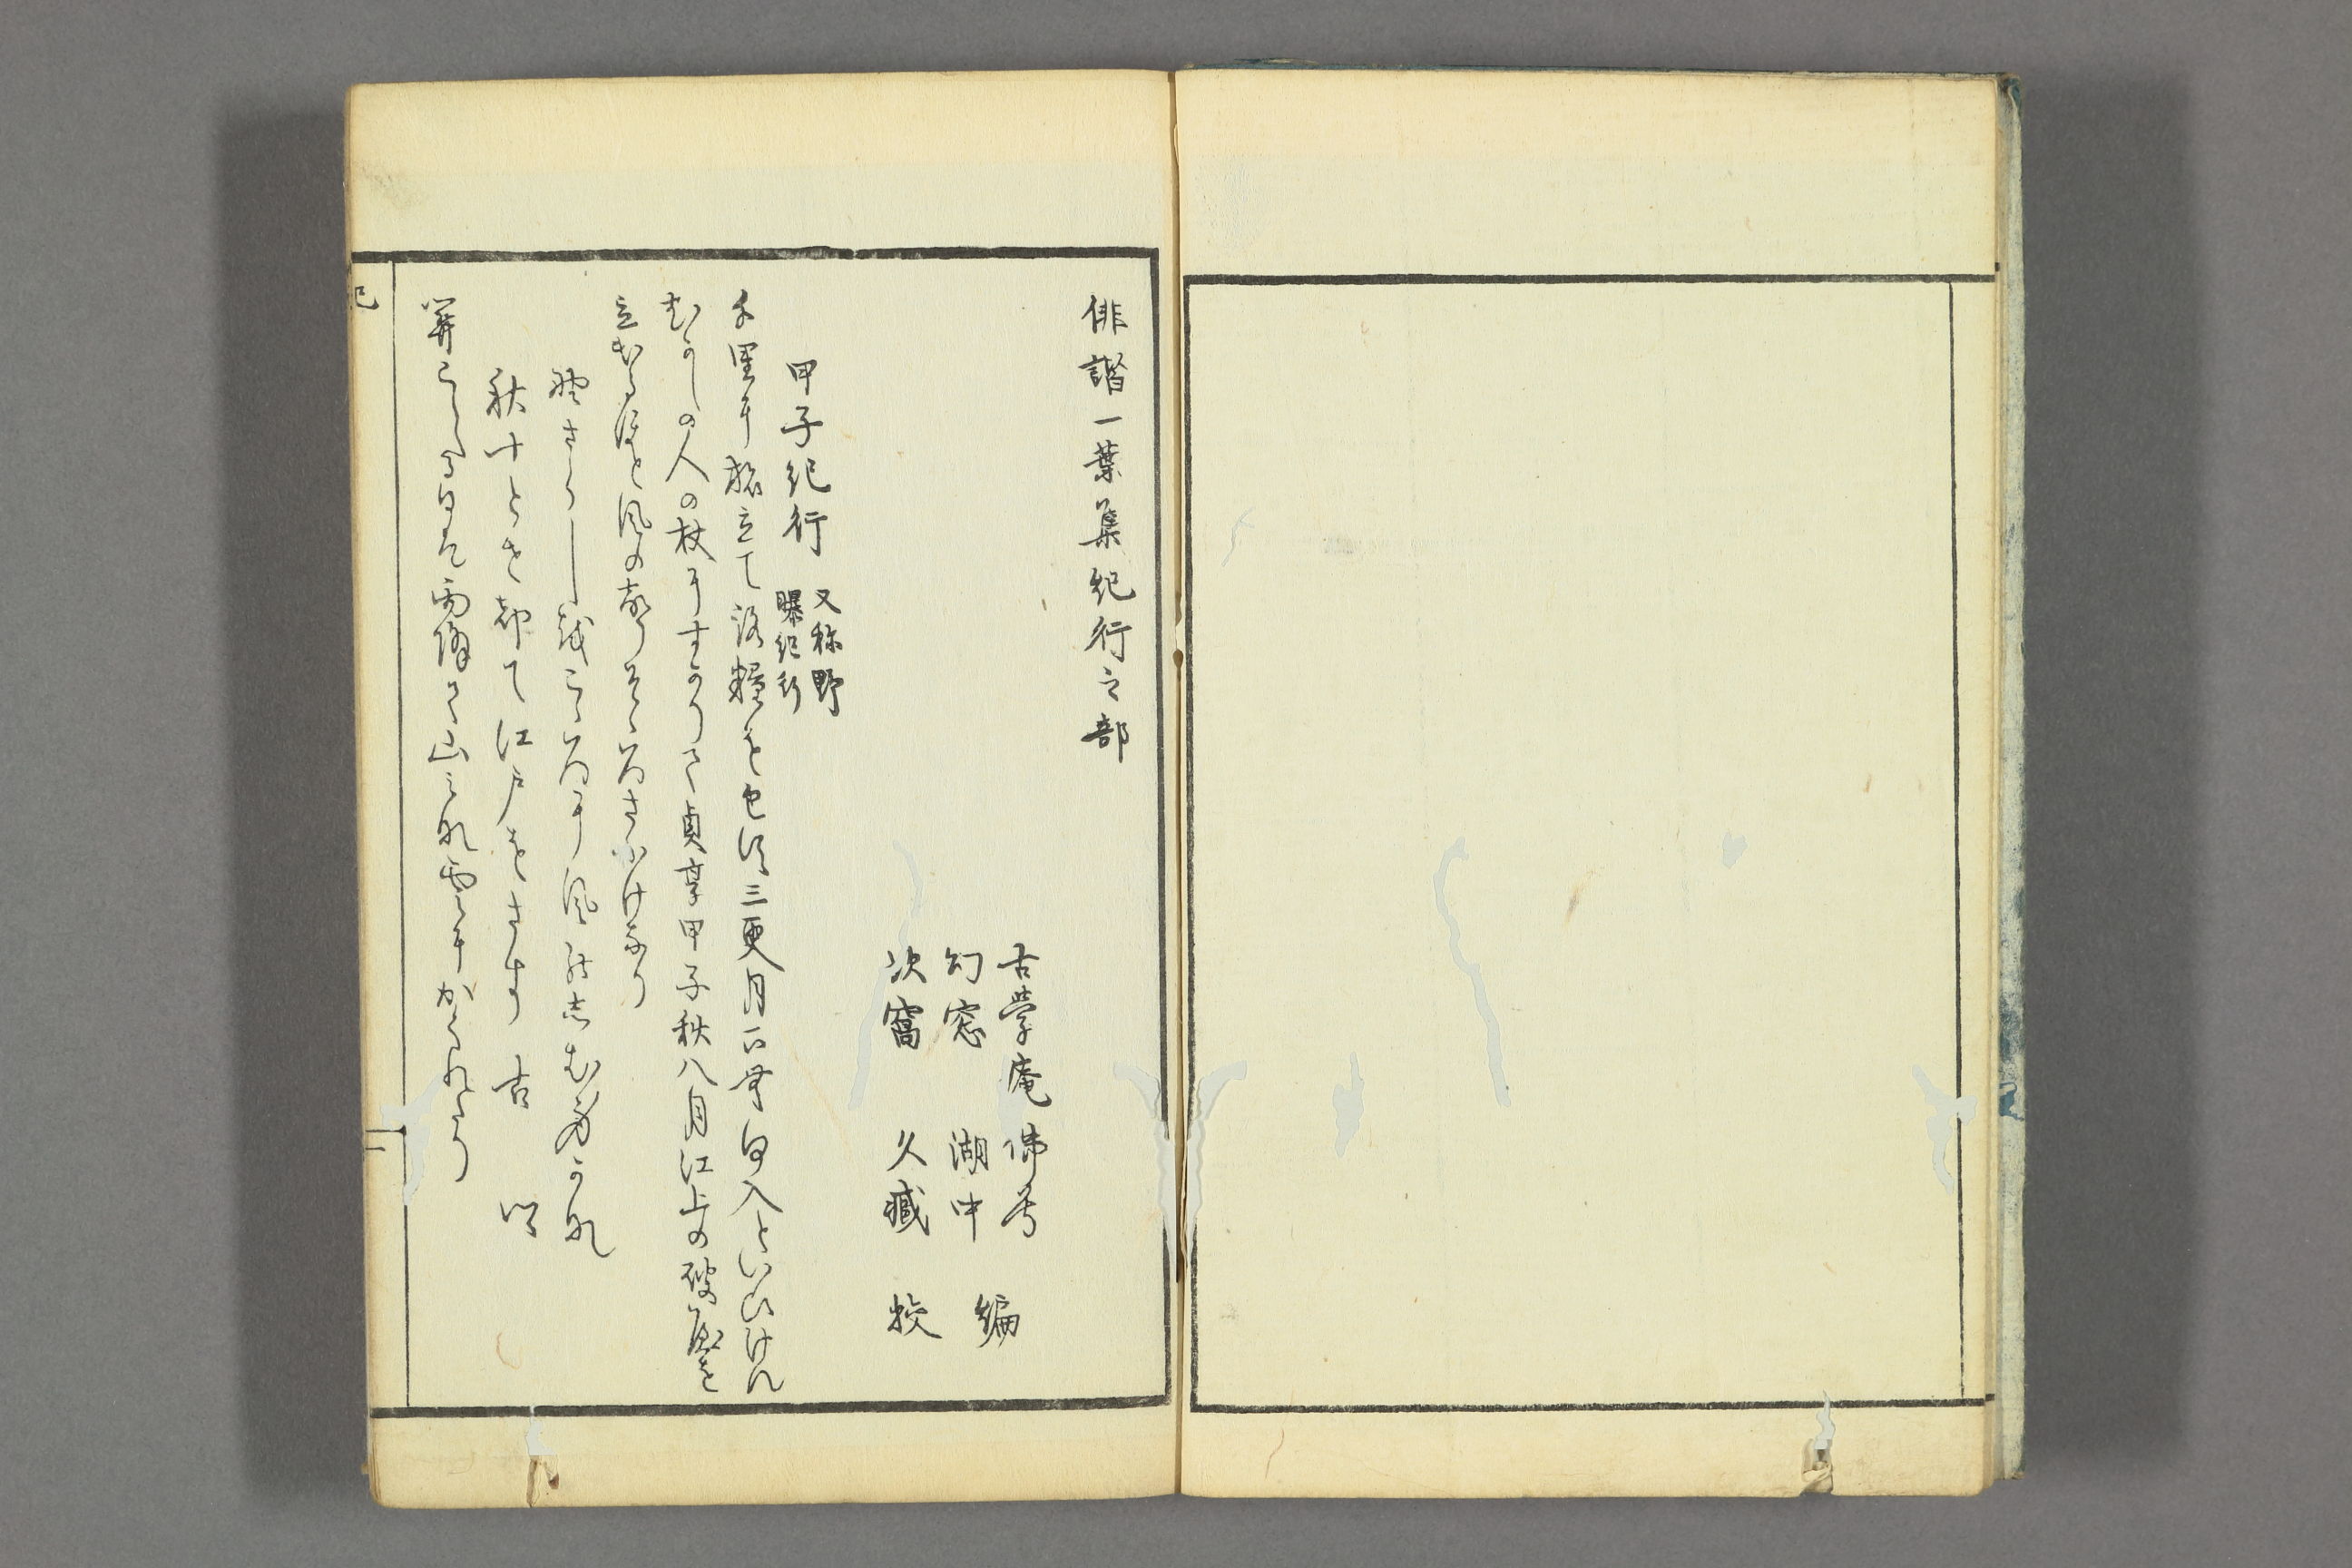 俳諧一葉集紀行之部
古學庵佛兮
幻窓湖中編
次窩久臧挍
甲子紀行
又称野
曝紀行
千里に旅立て路粮を包す三更月下無何入といひけん
むかしの人の杖にすかりて貞享甲子秋八月江上の破屋を
立出るほと風の聲そゝろさむけなり
野さらしをこゝろに風のしむ身かな
秋十とせ却て江戸をさす古
關こゆる日は雨降て山みな雲にかくれたり
紀
一